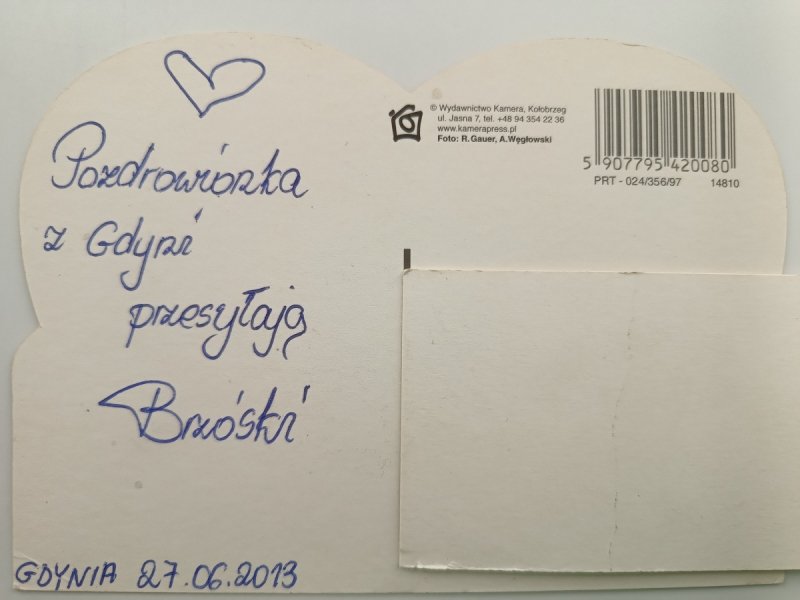 Pozdrowiónka
z Gdyni
przesyłają
Brzóski
GDYNIA 27.06.2013
© Wydawnictwo Kamera, Kołobrzeg
ul. Jasna 7, tel. +48 94 354 22 36
www.kamerapress.pl
Foto: R. Gauer, A.Węgłowski
5 907795 420080
PRT - 024/356/97 14810